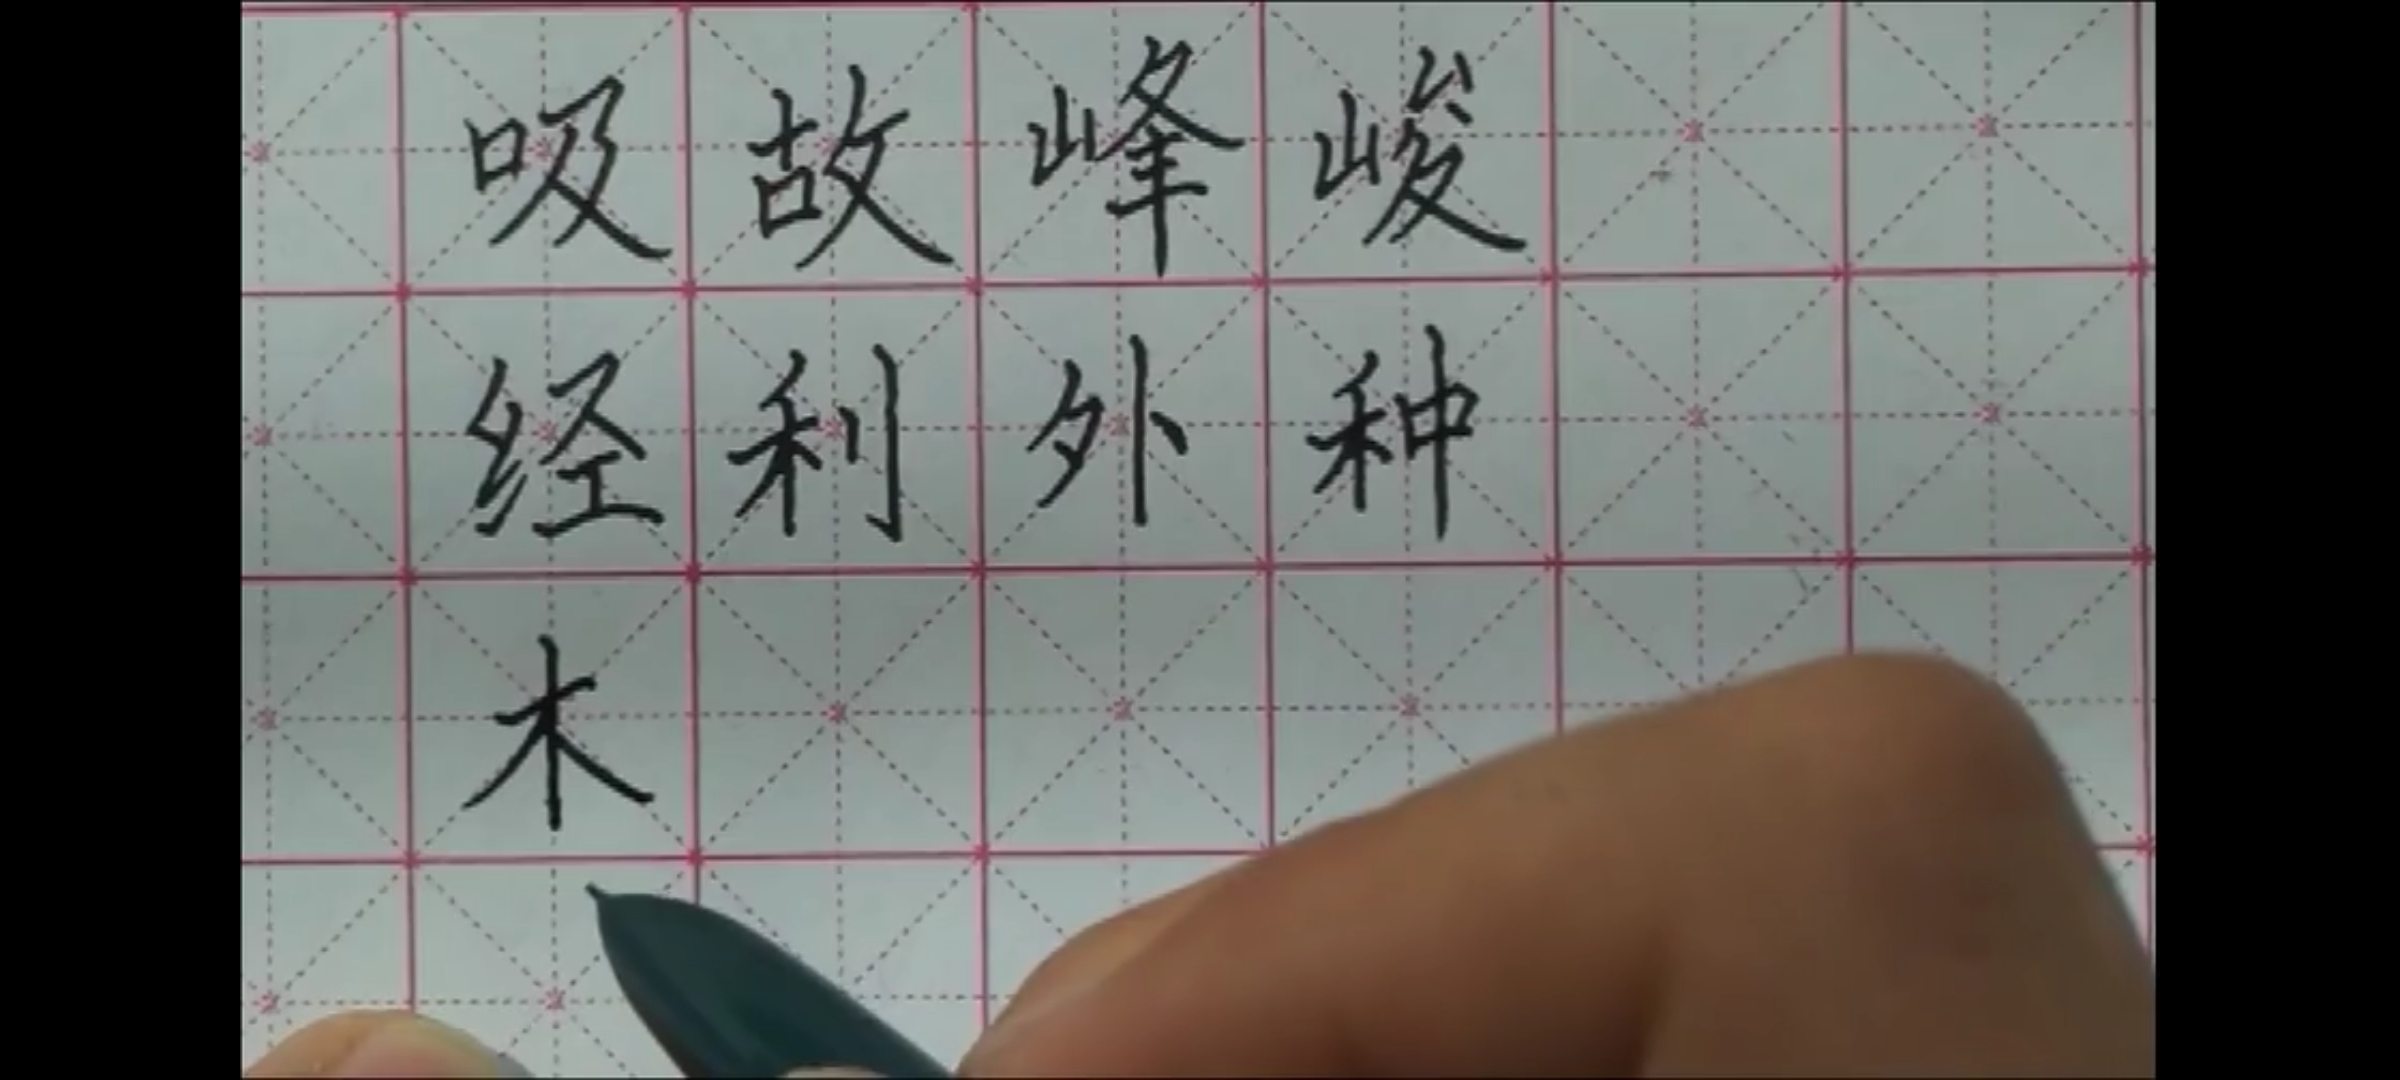 吸故峰峻
经利外种
木